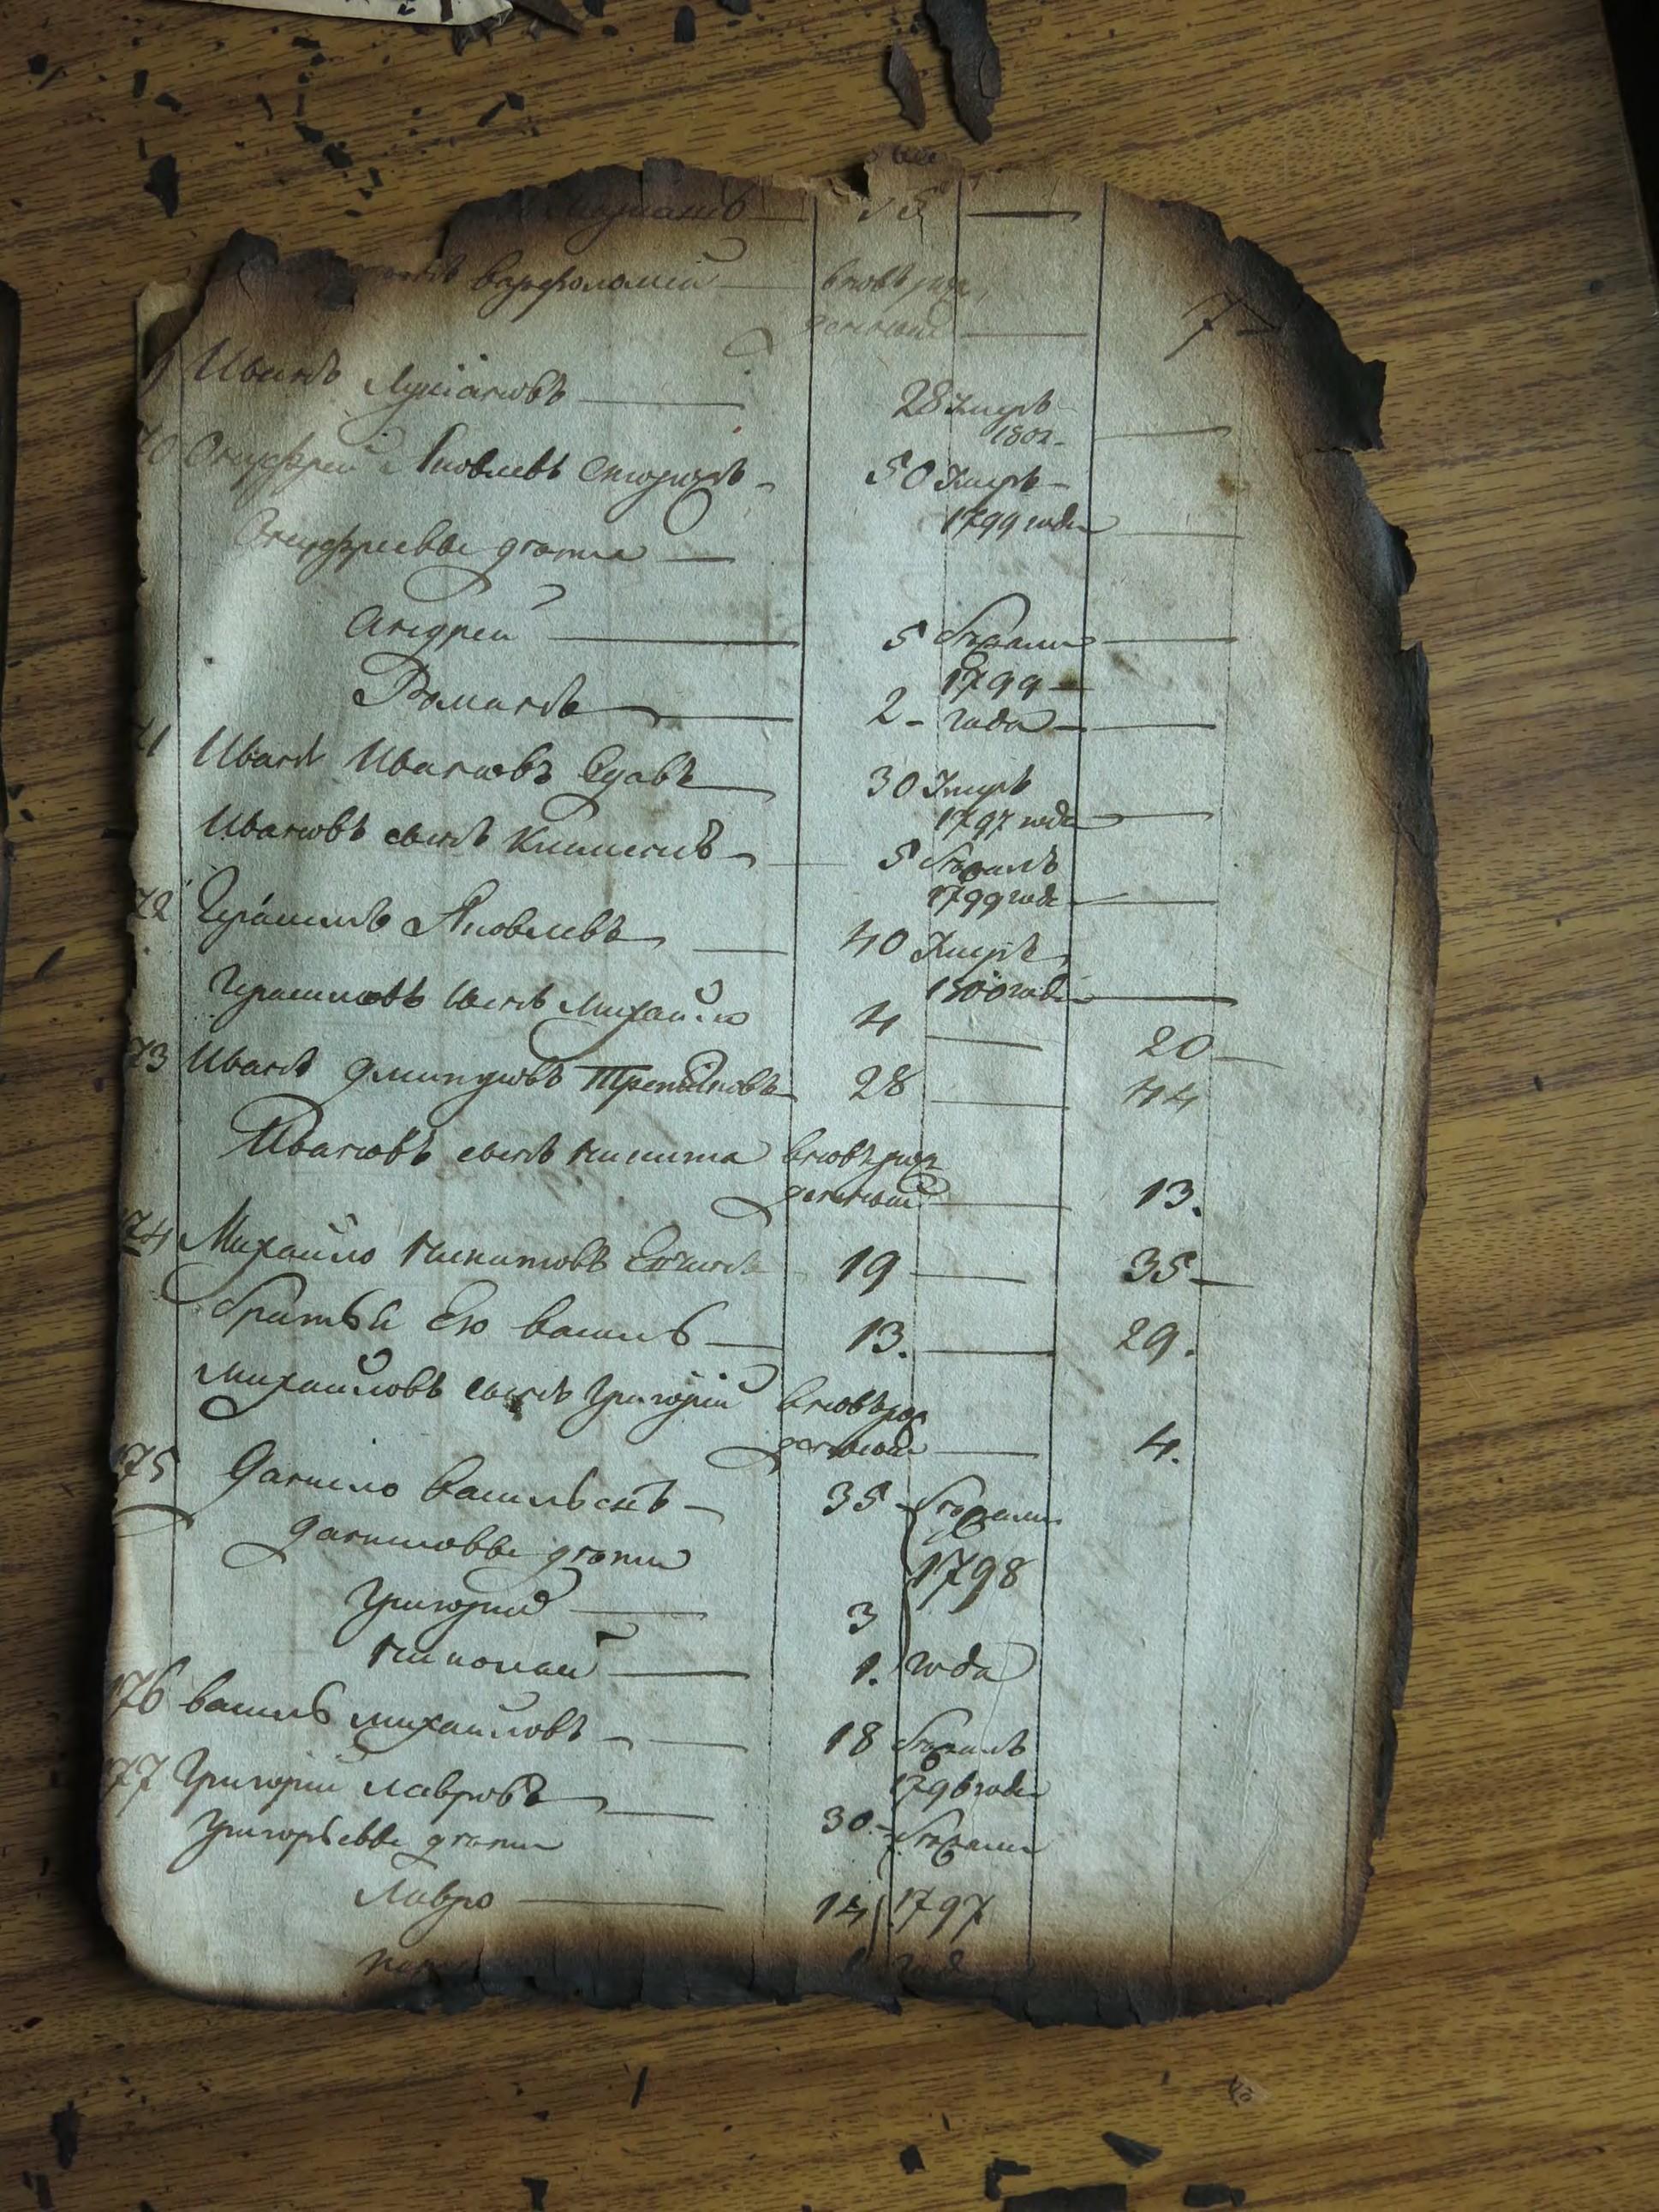 15
Варфоломей вновь рож
денный 7
Иванъ Лукіановъ 28 Умеръ
1802
70 Онуфрей Яковлевъ 50 Умеръ
1799 года
Онуфріевы дѣти
Андрей 5 Бежали
1799
Романъ 2 года
71 Иванъ Ивановъ 30 Умеръ
1797 года
Ивановъ сынъ 5 Бежалъ
1799 года
72 Герасимъ Яковлевъ 40 Умеръ
1800 года
Герасимовъ сынъ Михайло 4 20
73 Иванъ Дмитріовъ 28 44
Ивановъ сынъ Никита вновь рож
денный 13.
174 Михайло Никитовъ 19 35
братья Ево Василь 13. 29.
Михайловъ сынъ Григорій вновь рож
денный 4.
175 Данило Васильевъ 35 Бежали
Даниловы дѣти 1798
Григорий 3
Николай 1. года
176 Василь Михайловъ 18 Бежалъ
1796 года
77 Григорій Лавровъ 30. Бежали
Григорьевы дѣти
Лавро 14 1797